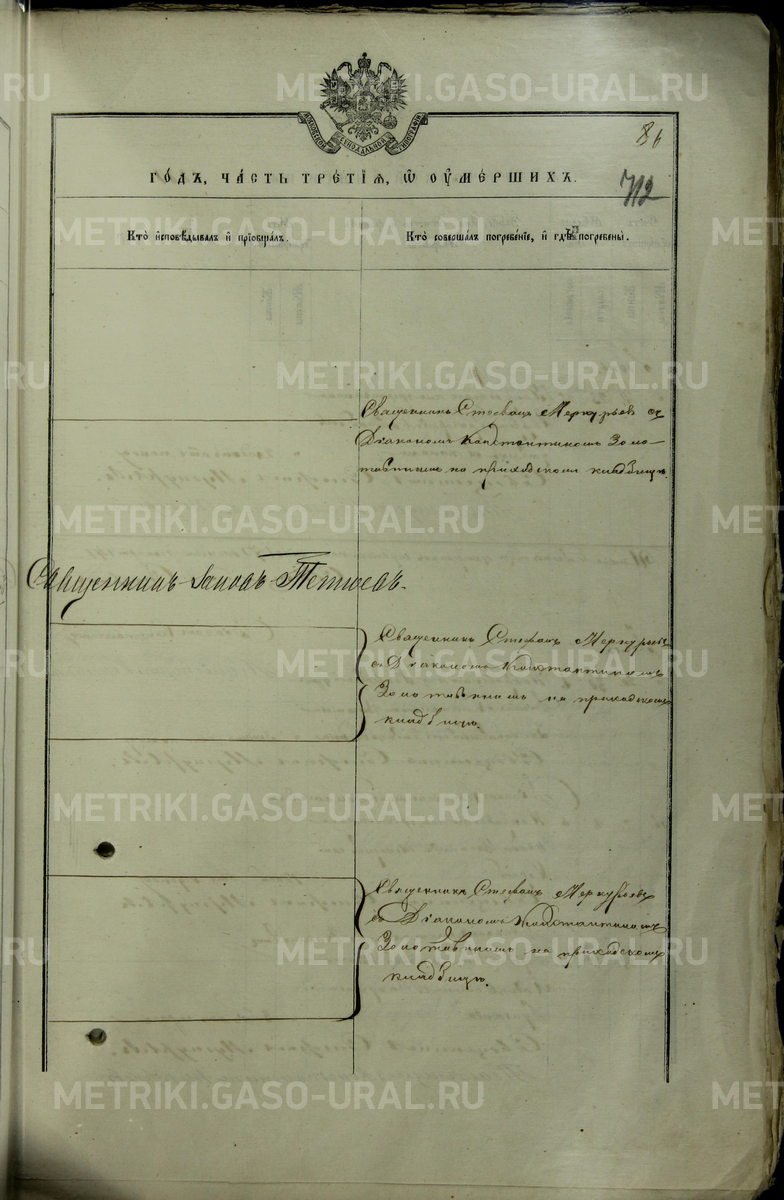 METRIKI.GASO-URAL.RU
МОСКОВСКОЙ СѴНОДАЛЬНОЙ ТИПОГРАФІИ
86
ГО́ДЪ, ЧА́СТЬ ТРЕ́ТІѦ, Ѿ ОУ҆МЕ́РШИХЪ.
712
Кто̀ и҆сповѣ́дывалъ и҆ прїѻбща́лъ.
Кто̀ соверша́лъ погребе́нїе, и҆ гдѣ̀ погребены̀.
Священникъ Стефанъ Меркурьевъ съ
Діакономъ Константиномъ Золо-
тавинымъ на приходскомъ кладбищѣ.
Священникъ Іаковъ Тетюевъ.
Священникъ Стефанъ Меркурьевъ
съ Діакономъ Константиномъ
Золотавинымъ на приходскомъ
кладбищѣ.
Священникъ Стефанъ Меркурьевъ
съ Діакономъ Константиномъ
Золотавинымъ на приходскомъ
кладбищѣ.